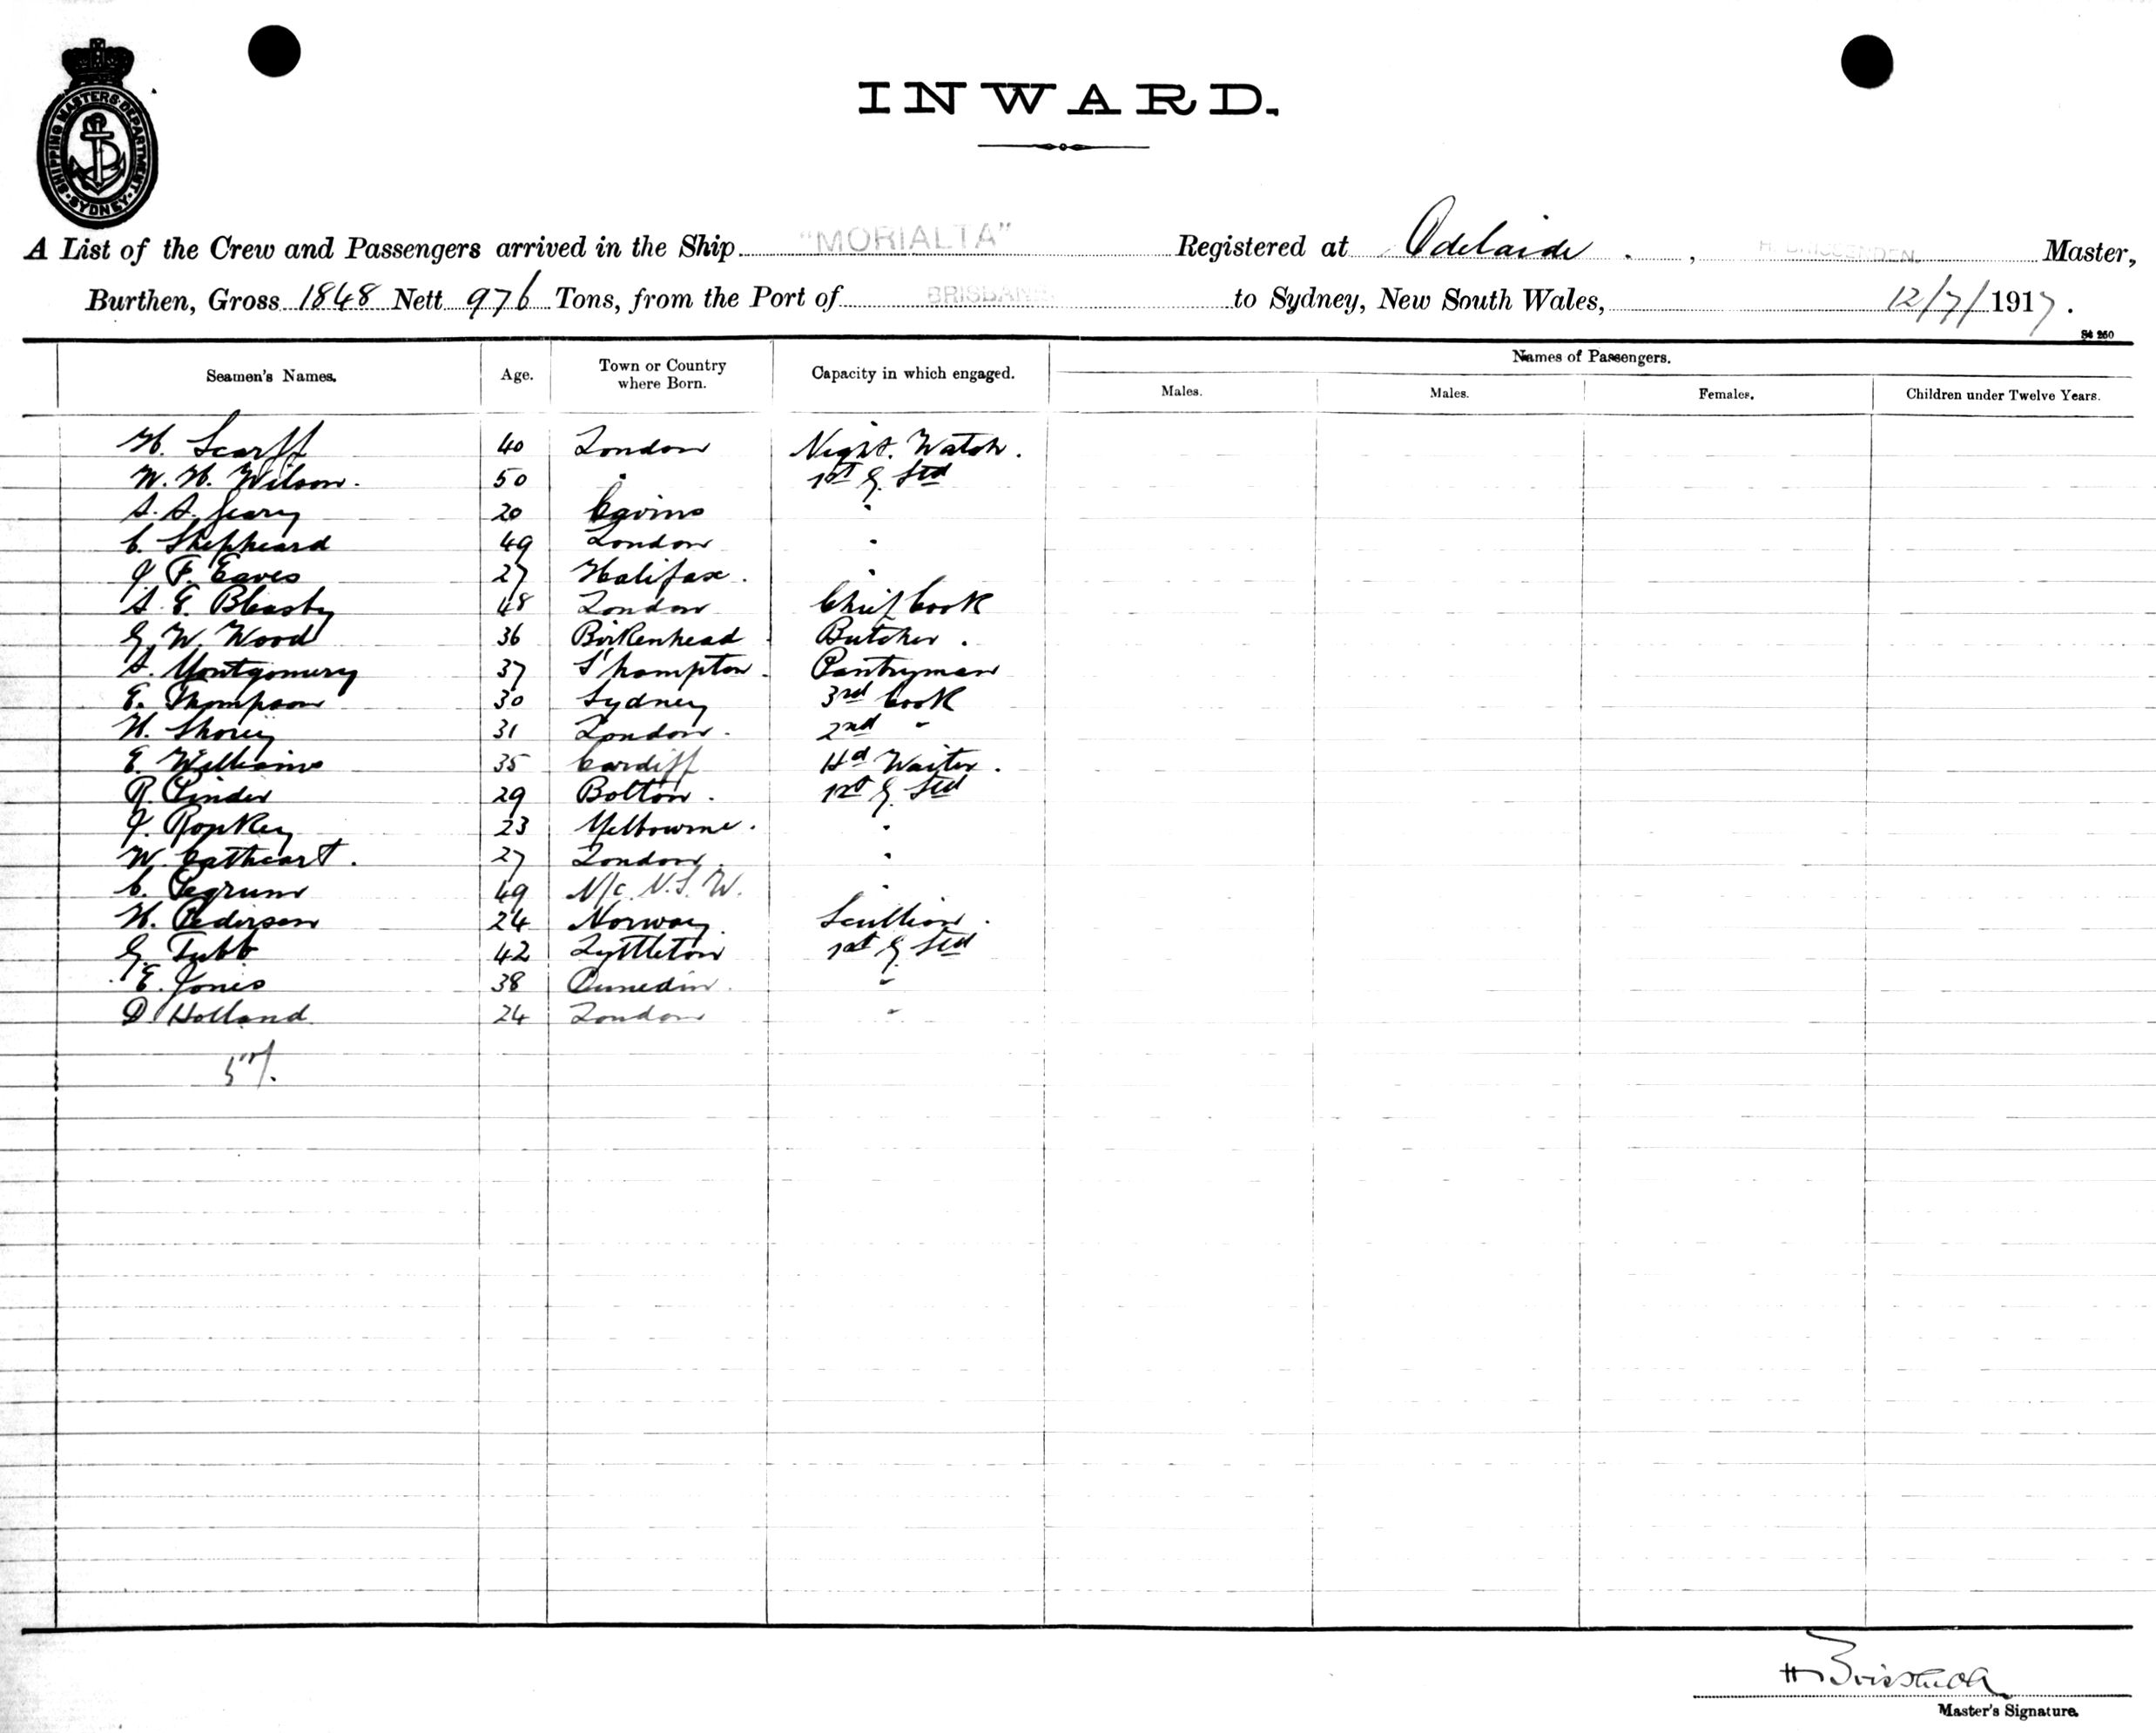 SHIPPING MASTERS DEPARTMENT · SYDNEY ·
INWARD.
A List of the Crew and Passengers arrived in the Ship "MORIALTA" Registered at Adelaide, H. BRISSENDEN. Master,
Burthen, Gross 1848 Nett 976 Tons, from the Port of BRISBANE to Sydney, New South Wales, 12/7/1917.
St 260
Seamen's Names. Age. Town or Country where Born. Capacity in which engaged. Names of Passengers.
Males. Males. Females. Children under Twelve Years.
H. Scarff 40 London Night. Watch.
W. H. Wilson. 50 " 1st G. Std
A. A. Geary 20 "
C. Shepheard 49 London "
J. F. Eaves 27 Halifax. "
A. E. Bleasby 48 London Chief Cook
G. W. Wood 36 Birkenhead Butcher.
A. Montgomery 37 S'hampton. Pantryman
E. Thompson 30 Sydney 3rd Cook
H. Shorey 31 London. 2nd "
E. Williams 35 Cardiff Hd Waiter.
R. Pinder 29 Bolton. 1st G. Std
J. Ropkey 23 Melbourne. "
W. Cathcart. 27 London. "
C. Pegrum 49 N/c. N.S.W. "
H. Pedersen 24 Norway. Scullion.
G. Tubb 42 Lyttleton 1st G Std
E. Jones 38 Dunedin. "
D. Holland 24 London "
H Brissenden
Master's Signature.